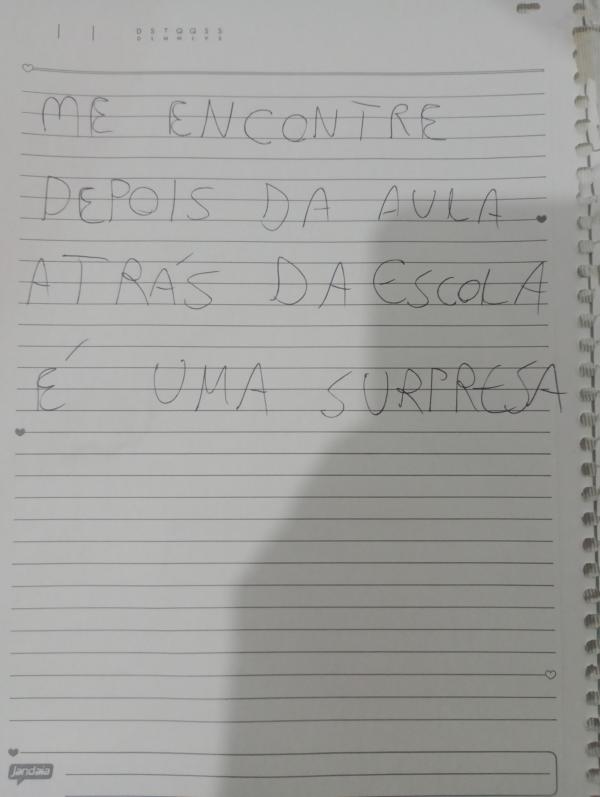 D S T Q Q S S
D L M M J V S
ME ENCONTRE
DEPOIS DA AULA
ATRÁS DA ESCOLA
É UMA SURPRESA
Jandaia